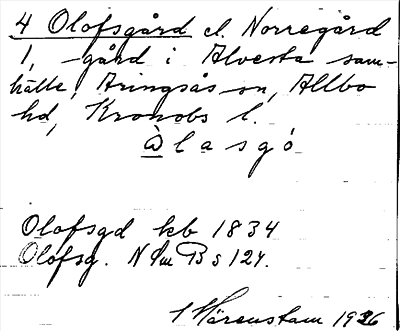 4 Olofsgård el. Norregård
1, -gård i Alvesta sam-
hälle, Aringsås sn, Allbo
hd, Kronobs l.
Olofsgd kb 1834
Olofsg. N Sm B s 124.
S Härenstam 1926